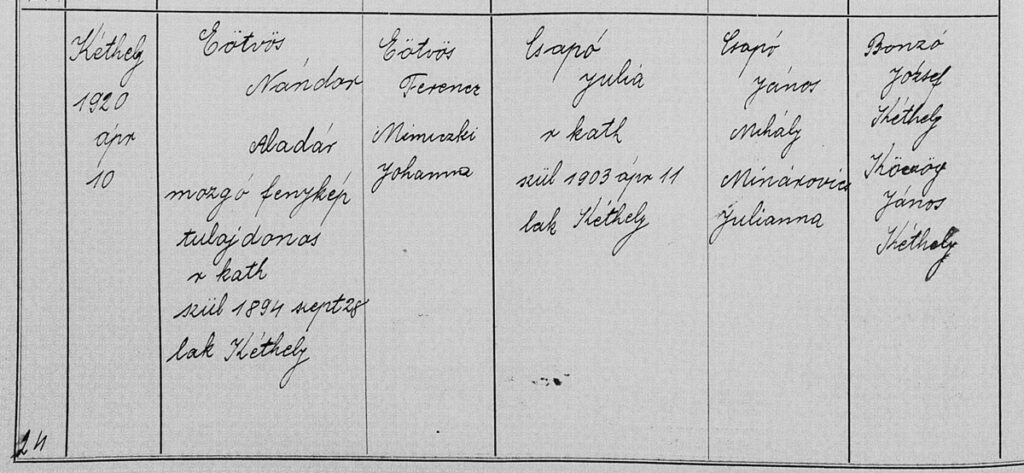 Kéthely
1920
ápr
10
Eötvös
Nándor
Aladár
mozgó fenykép
tulajdonos
r kath
szül 1894 szept 28
lak Kéthely
Eötvös
Ferencz
Mimiczki
Johanna
Csapó
Julia
r kath
szül 1903 ápr 11
lak Kéthely
Csapó
János
Mihály
Minárovics
Julianna
Bonzó
József
Kéthely
János
Kéthely
24